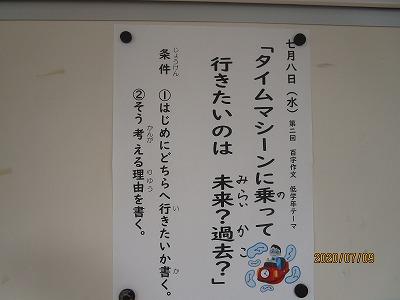 七月八日（水） 第二回 百字作文 低学年テーマ
「タイムマシーンに乗って
の
行きたいのは 未来？過去？」
みらい かこ
条件 ①はじめにどちらへ行きたいか書く。
じょうけん い か
②そう考える理由を書く。
かんが りゆう
2020/07/09